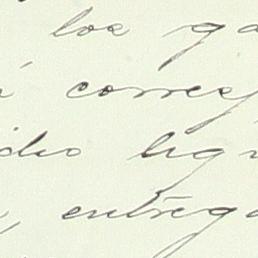 los ga
á corres
dio lig
, entrega